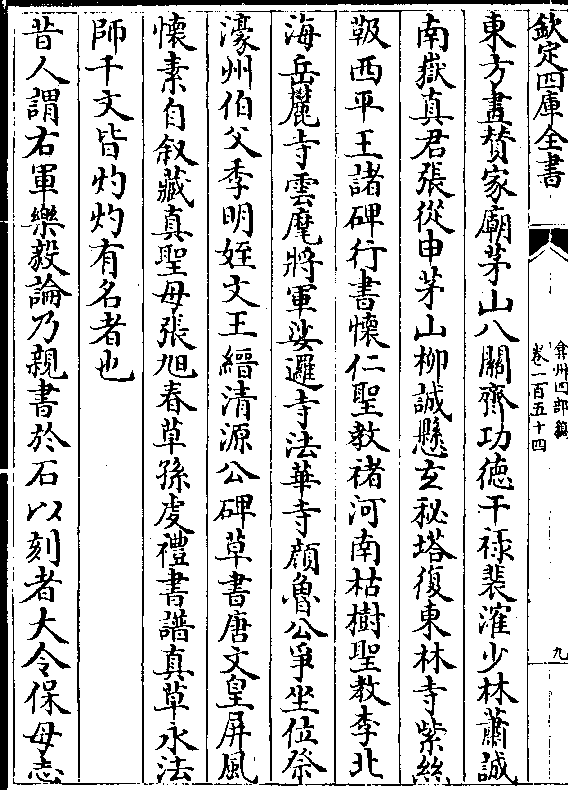 欽定四庫全書
弇州四部稿
卷一百五十四
九
東方畫賛家廟茅山八關齊功徳干禄裴漼少林蕭誠
南嶽真君張從申茅山柳誠懸玄秘塔復東林寺紫絲
靸西平王諸碑行書懐仁聖教禇河南枯樹聖教李北
海岳麓寺雲麾將軍娑邏寺法華寺顔魯公爭坐位祭
濠州伯父季明姪文王縉清源公碑草書唐文皇屏風
懐素自叙藏真聖母張旭春草孫虔禮書譜真草永法
師千文皆灼灼有名者也
昔人謂右軍樂毅論乃親書於石以刻者大令保母志